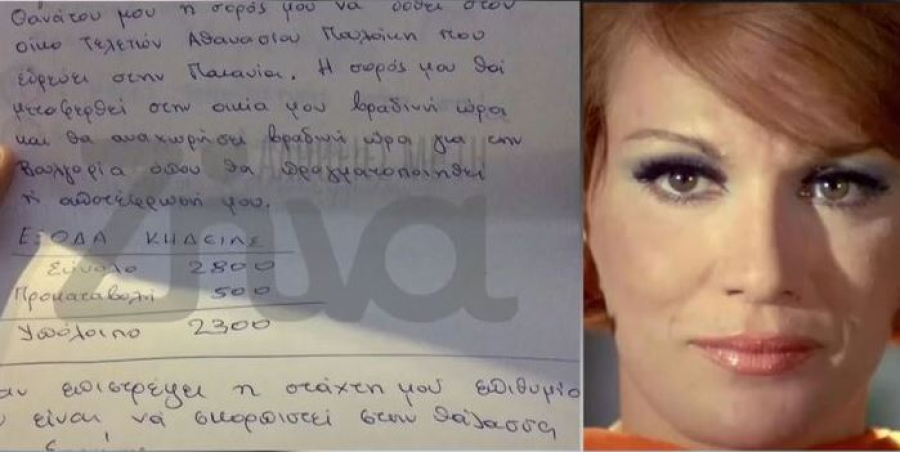 θανάτου μου η σορός μου να δοθεί στον
οίκο τελετών Αθανασίου Παυλάκη που
εδρεύει στην Παιανία. Η σορός μου θα
μεταφερθεί στην οικία μου βραδινή ώρα
και θα αναχωρήσει βραδινή ώρα για την
Βουλγαρία όπου θα πραγματοποιηθεί
η αποτέφρωσή μου.
ΕΞΟΔΑ ΚΗΔΕΙΑΣ
Σύνολο 2800
Προκαταβολή 500
Υπόλοιπο 2300
αν επιστρέψει η στάχτη μου επιθυμία
είναι να σκορπιστεί στην θάλασσα